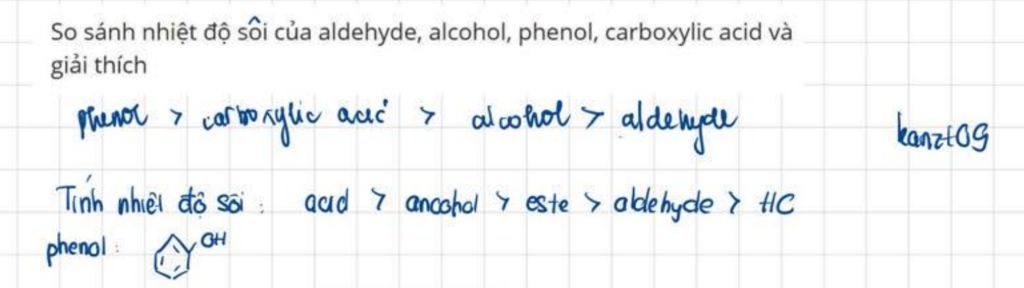 So sánh nhiệt độ sôi của aldehyde, alcohol, phenol, carboxylic acid và
giải thích
phenol > carboxylic acid > alcohol > aldehyde
kanzt09
Tính nhiệt độ sôi : acid > ancohol > este > aldehyde > HC
phenol : OH